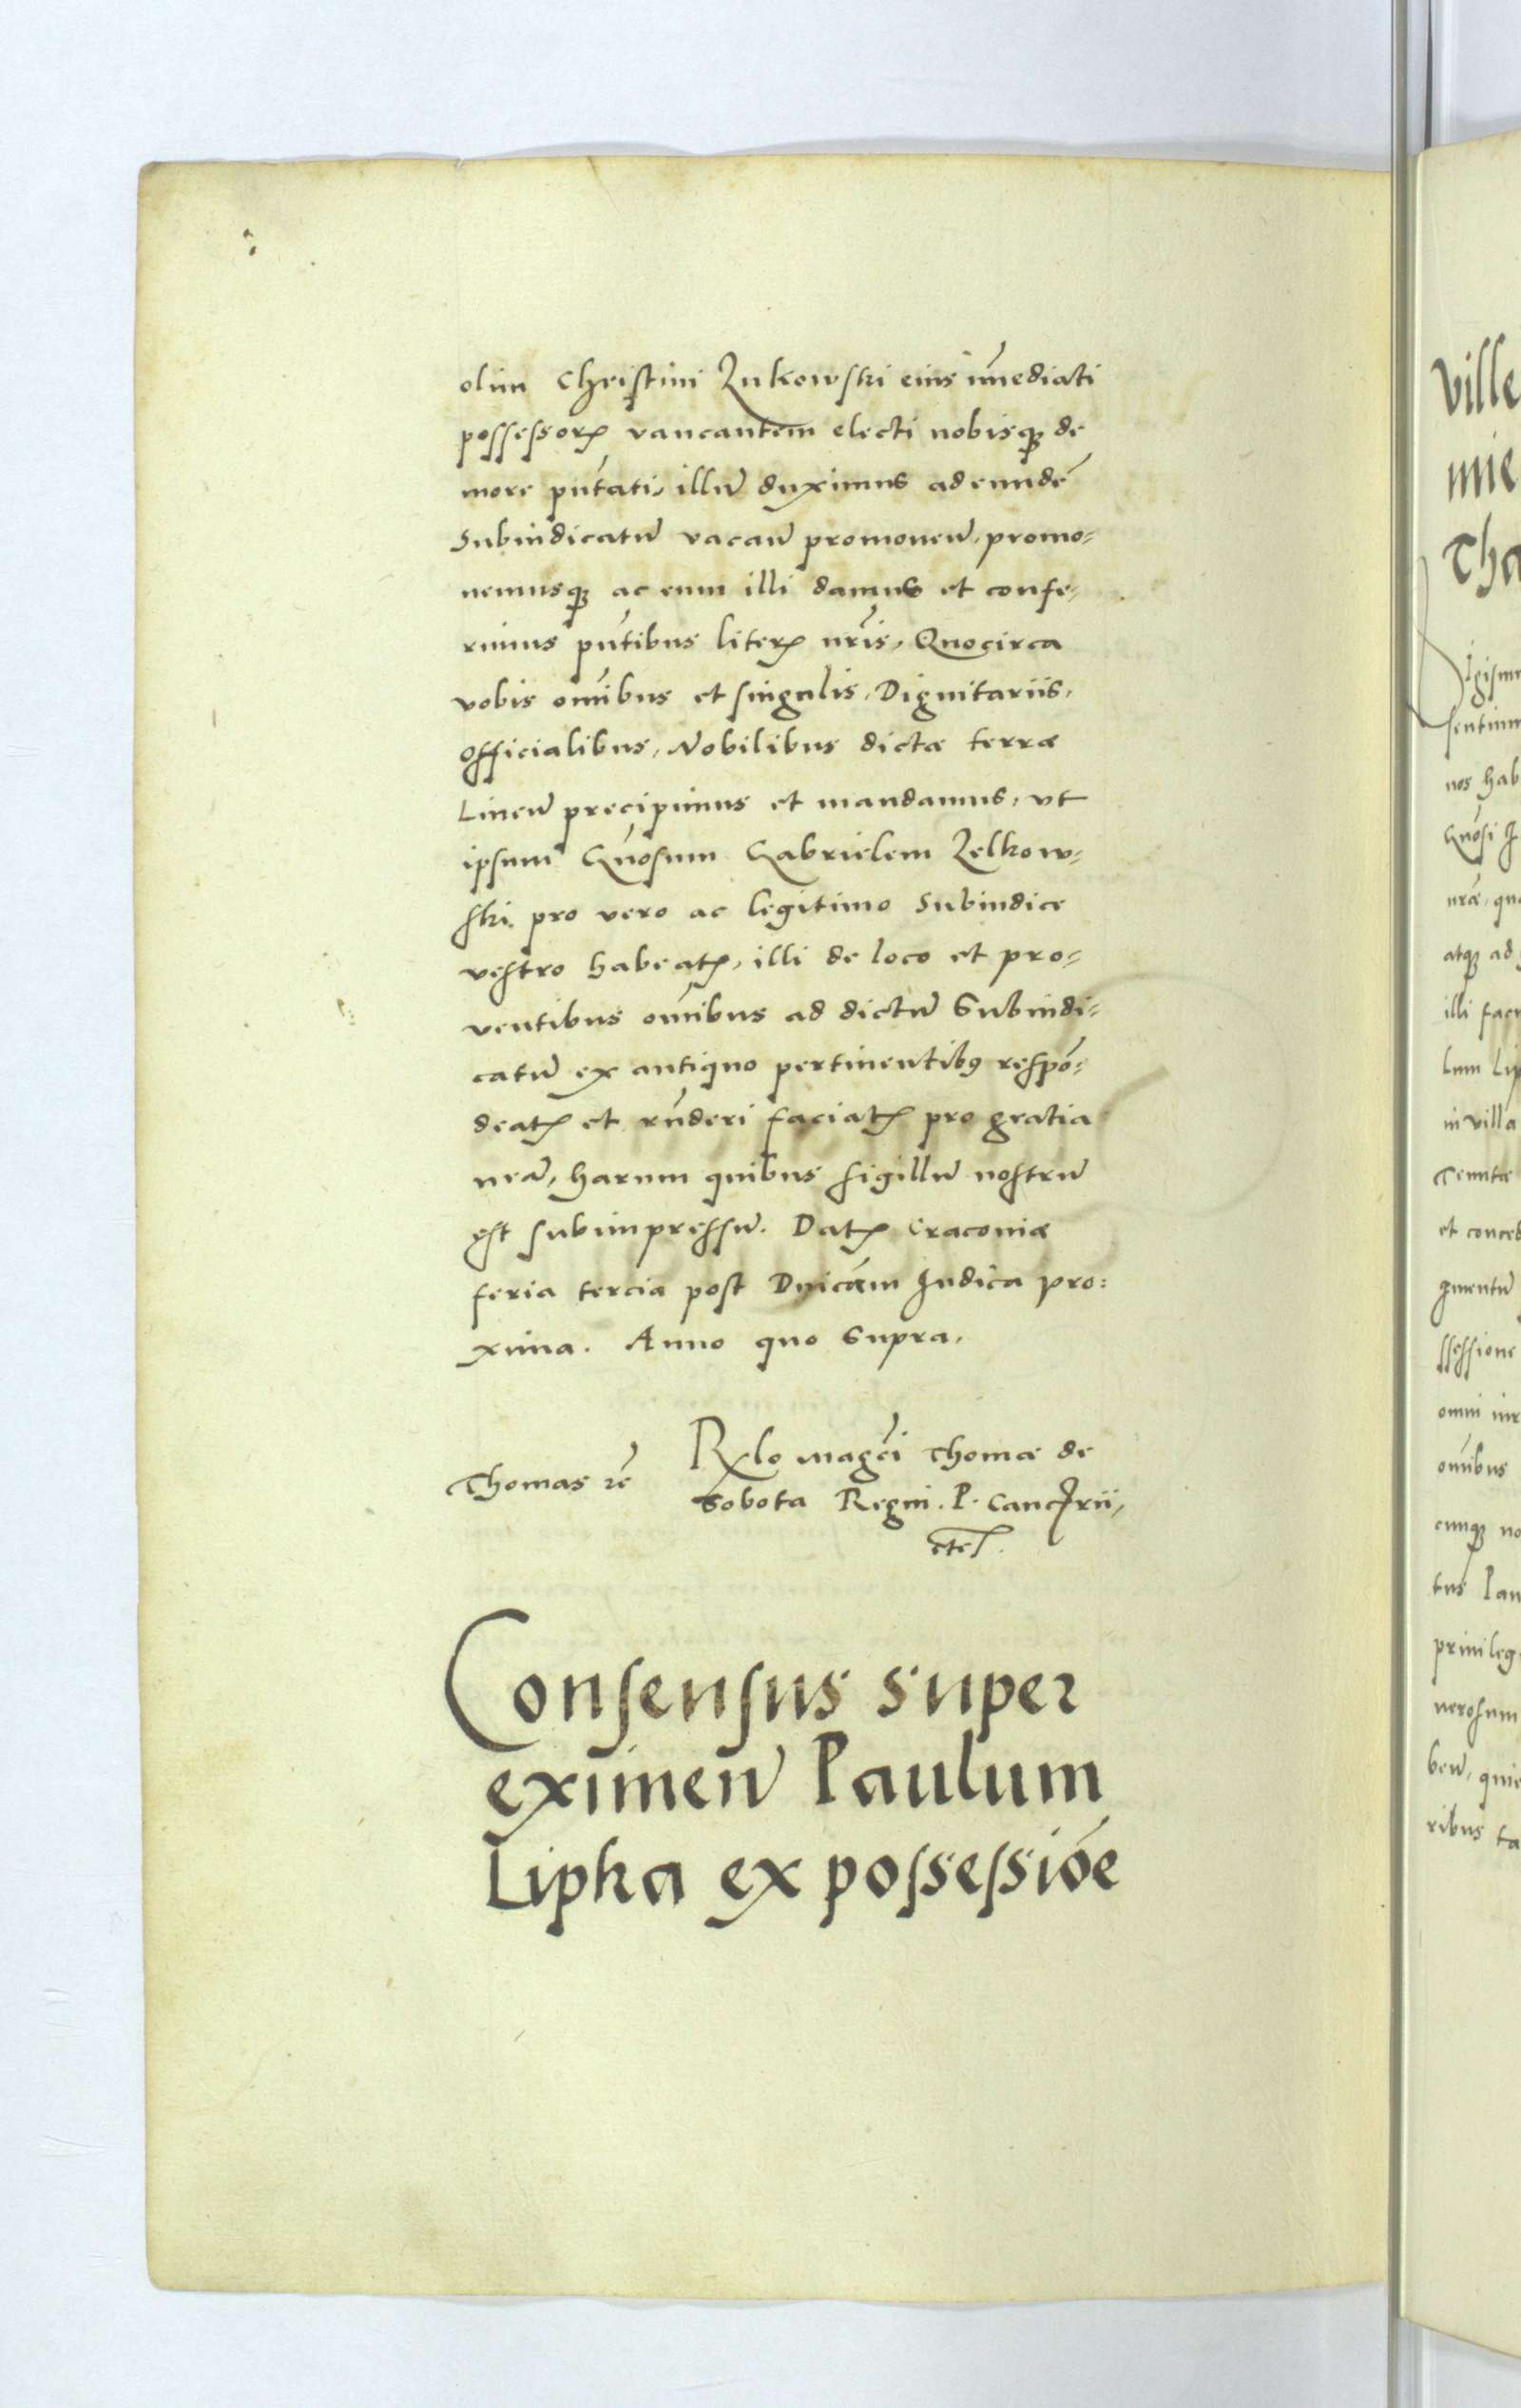 olim Christini Zukowski eius im̄ediati
possessorꝭ vancantem electi nobisqꝫ de
more pn̄tati, illū duximus ad eundē
Subiudicatū vacan̄ promouen̄, promo⸗
uemusqꝫ ac eum illi damus et confe⸗
rimus pn̄tibus literꝭ nr̄is, Quocirca
vobis om̄ibus et singulis, Dignitariis,
Officialibus, Nobilibus dictæ terræ
Lincn̄ precipimus et mandamus, vt
ipsum Gn̄osum Gabrielem Zelkow⸗
ski pro vero ac legitimo Subiudice
vestro habeatꝭ, illi de loco et pro⸗
uentibus om̄ibus ad dictū Subiudi⸗
catū ex antiquo pertinentibꝰ respō⸗
deatꝭ et rn̄deri faciatꝭ pro gratia
nr̄a, harum quibus sigillū nostrū
est subimpressū. Datꝭ Craconiæ
feria tercia post Dn̄icam Iudica pro⸗
xima. Anno quo supra.
Thomas
Rlo maḡci Thomæ de
Sobota Regni. P. Canc̄rii,
etc.
Consensus super
eximen̄ Paulum
Lipka ex possessiōe
ville
mie
Tha
sentium
nos hab
Gn̄osi
nr̄æ, qu
atqꝫ ad
illi facu
lum Lip
in villa
Tenutæ
et conced
gmentū
ssessione
omni iur
om̄ibus
cunqꝫ no
tus Pau
priuileg
nerosum
ben̄, quie
ribus ta